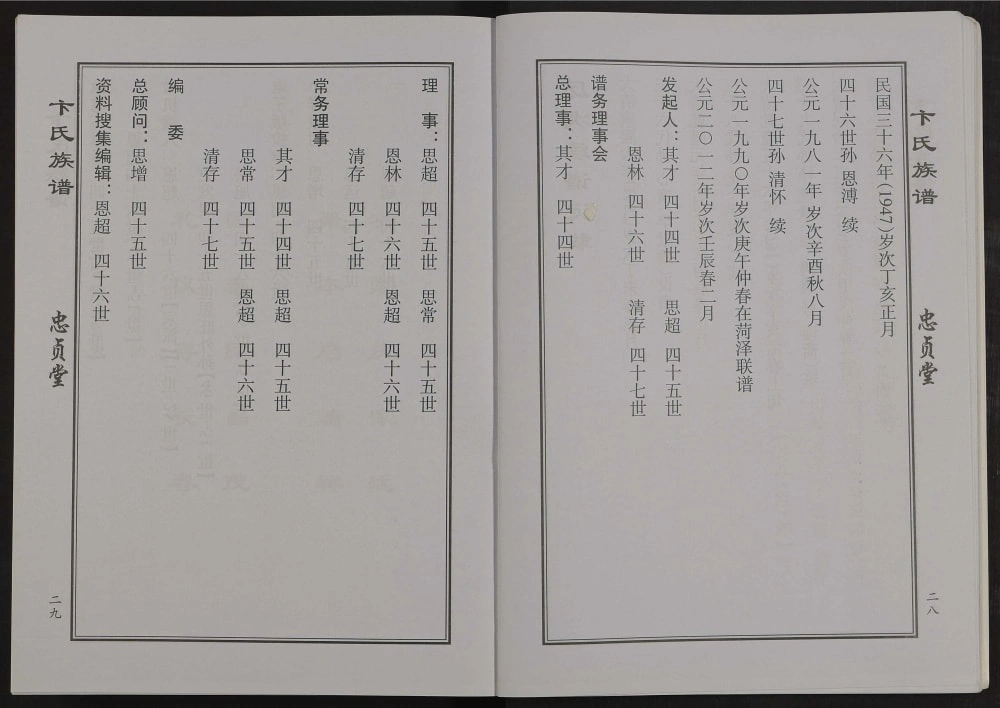 卞氏族谱
忠贞堂
二八
民国三十六年(1947)岁次丁亥正月
四十六世孙 恩溥 续
公元一九八一年 岁次辛酉秋八月
四十七世孙 清怀 续
公元一九九〇年岁次庚午仲春在菏泽联谱
公元二〇一二年岁次壬辰春二月
发起人：其才 四十四世 思超 四十五世
恩林 四十六世 清存 四十七世
谱务理事会
总理事：其才 四十四世
理 事：思超 四十五世 思常 四十五世
恩林 四十六世 恩超 四十六世
清存 四十七世
常务理事
其才 四十四世 思超 四十五世
思常 四十五世 恩超 四十六世
清存 四十七世
编 委
总顾问：思增 四十五世
资料搜集编辑：恩超 四十六世
卞氏族谱
忠贞堂
二九